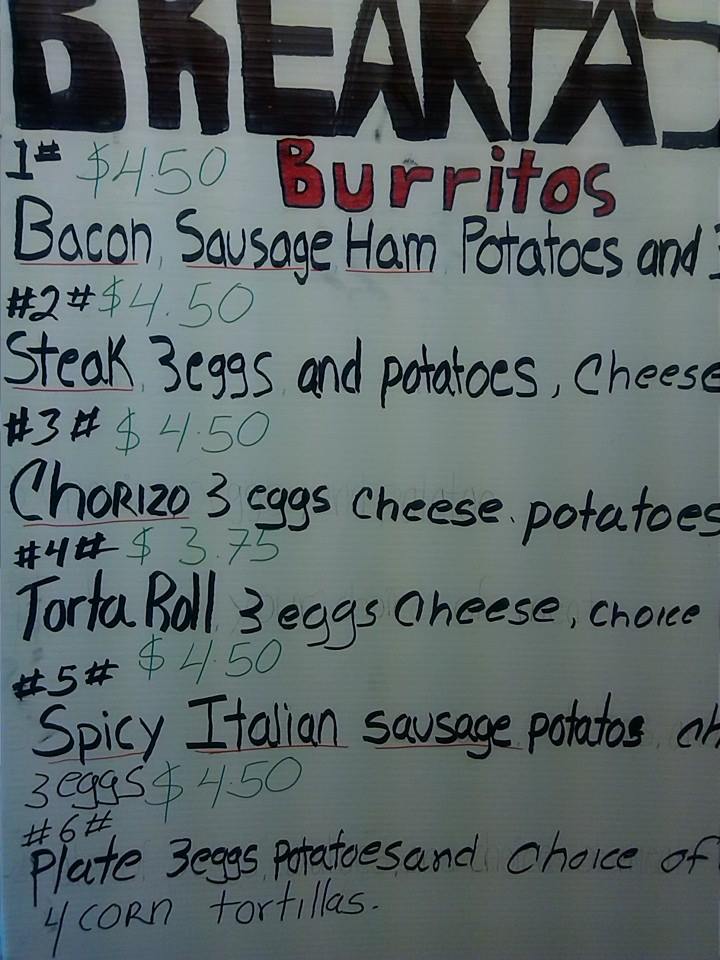 BREAKFAS
1# $4.50 Burritos
Bacon, Sausage Ham Potatoes and 3
#2# $4.50
Steak, 3eggs and potatoes, Cheese
#3# $4.50
Chorizo 3 eggs cheese. potatoes
#4# $3.75
Torta Roll 3 eggs Cheese, choice
#5# $4.50
Spicy Italian sausage potatos, ch
3 eggs $4.50
#6#
plate 3eggs, potatoes and choice of
4 corn tortillas.